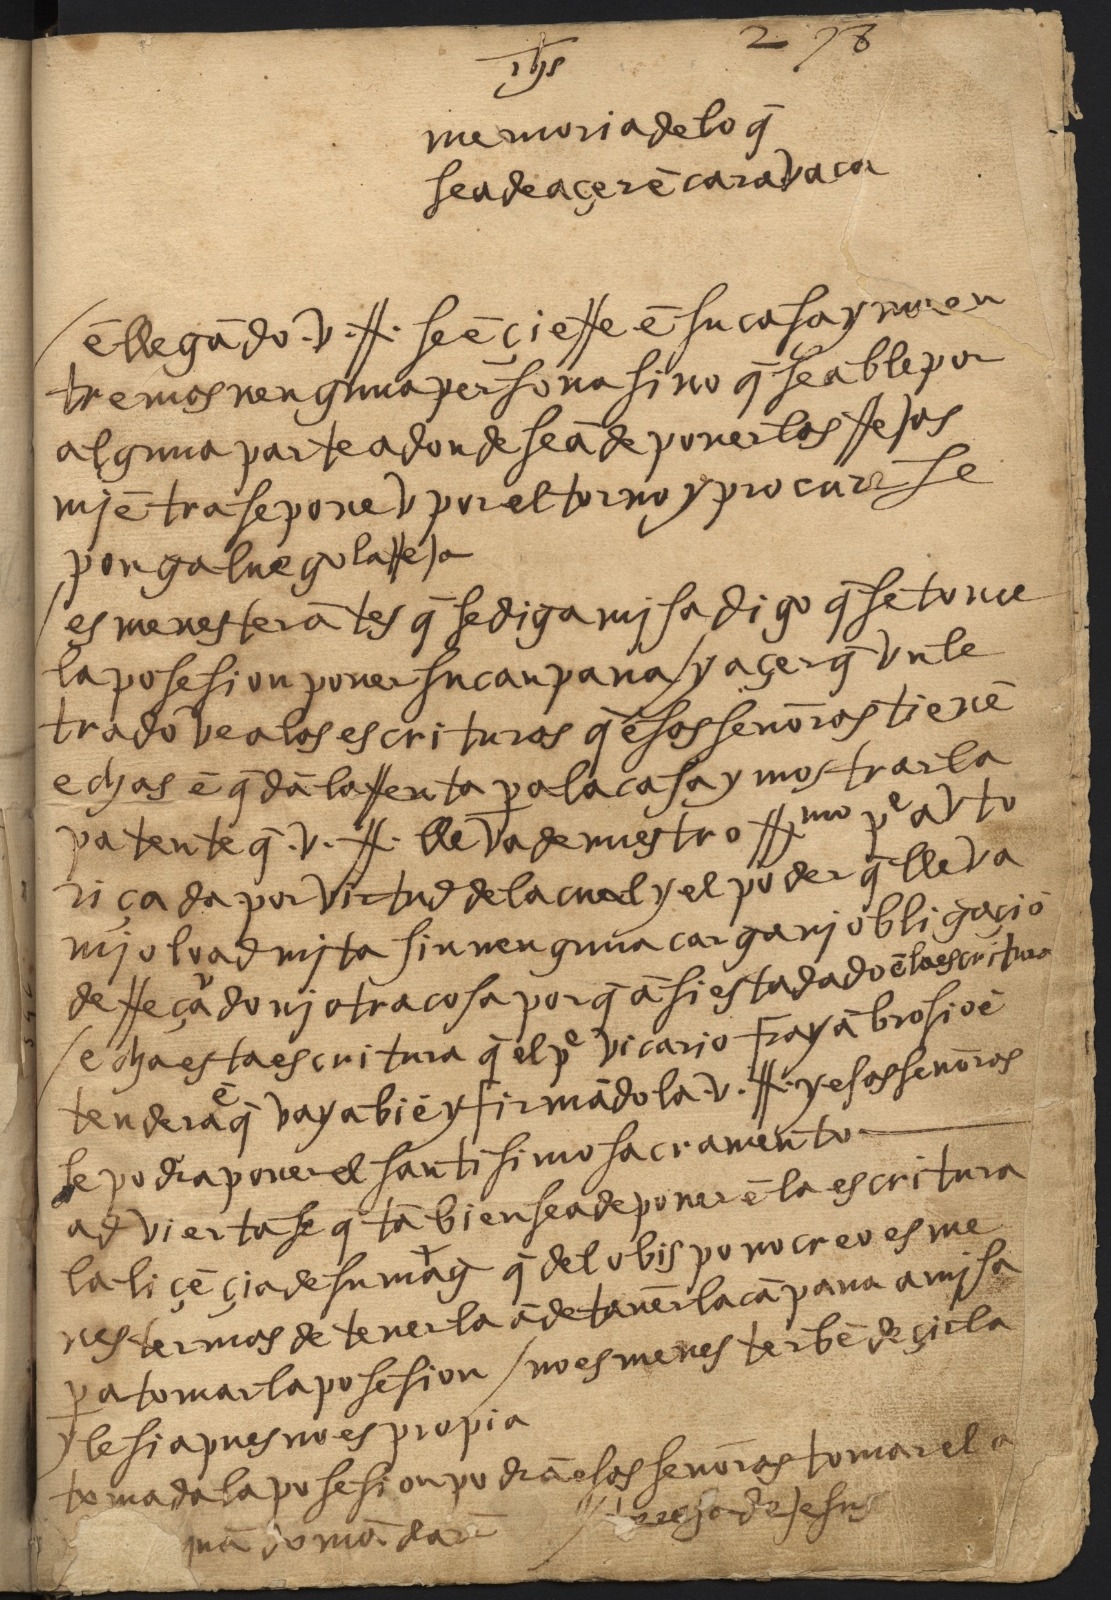 278
jhs
memoria de lo q̄
se a de açer ē caravaca
/ ē llegādo .v.R. se ēçierre ē su casa y no en
tre mas nenguna persona sino q̄ se able por
alguna parte adonde se ā de poner las rejas
mjētra se pone v por el torno y procure se
ponga luego la reja
/ es menester ātes q̄ se diga mjsa digo q̄ se tome
la posesion poner su canpana / y açer q̄ vn le
trado vea las escrituras q̄ esas señoras tienē
echas ē q̄ dā la renta pa la casa y mostrar la
patente q̄ .v.R. lleva de nuestro R.mo pe avto
riçada por virtud de la cual y el poder q̄ lleva
mjo lo admjta sin nenguna carga nj obligaçiō
de reçado nj otra cosa porq̄ āsi esta dado ē la escritura
/ echa esta escritura q̄ el pe vicario fray ābrosio ē
tenderā ē q̄ vaya biē y firmādola .v.R. y esas señoras
se podra poner el santisimo sacramento
adviertase q̄ tābien se a de poner ē la escritura
la liçēçia de su mag q̄ del obispo no creo es me
nester mas de tenerla ā de tañer la cāpana a mjsa
pa tomar la posesion / no es menester bēdeçir la
ylesia pues no es propia
tomada la posesion podrā esas señoras tomar el a
cuādo mādarē // teresa de jesus